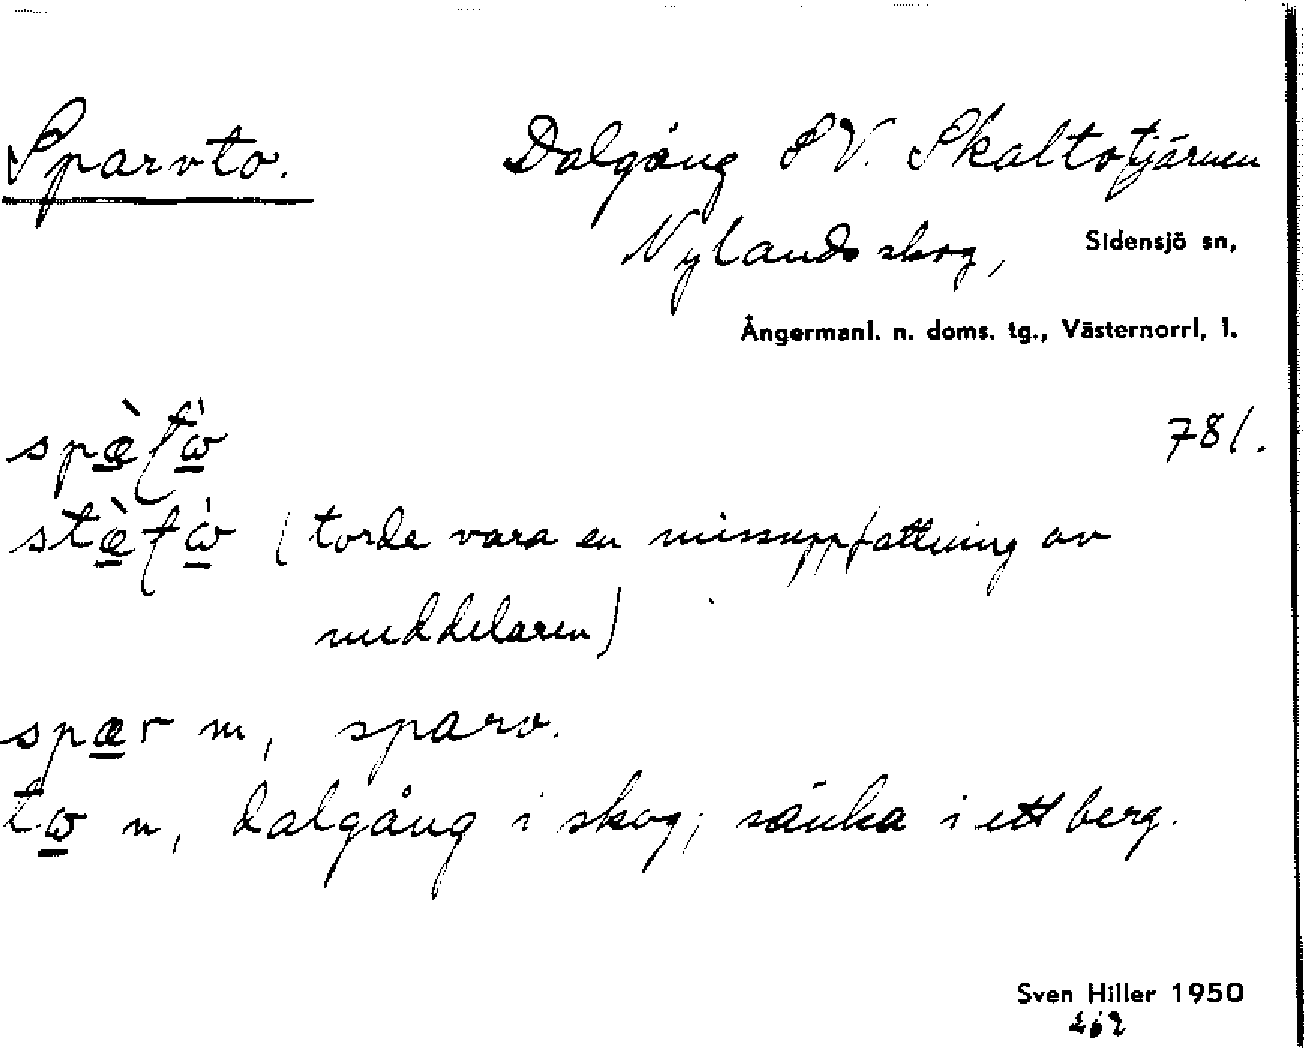 Sparvto. Dalgång SV. Skaltotjärnen
Nylandsskog, Sidensjö sn,
Ångermanl. n. doms. tg., Västernorrl. l.
781.
(torde vara en missuppfattning av
meddelaren)
spær m, sparv.
tω n, dalgång i skog; sänka i ett berg.
Sven Hiller 1950
262